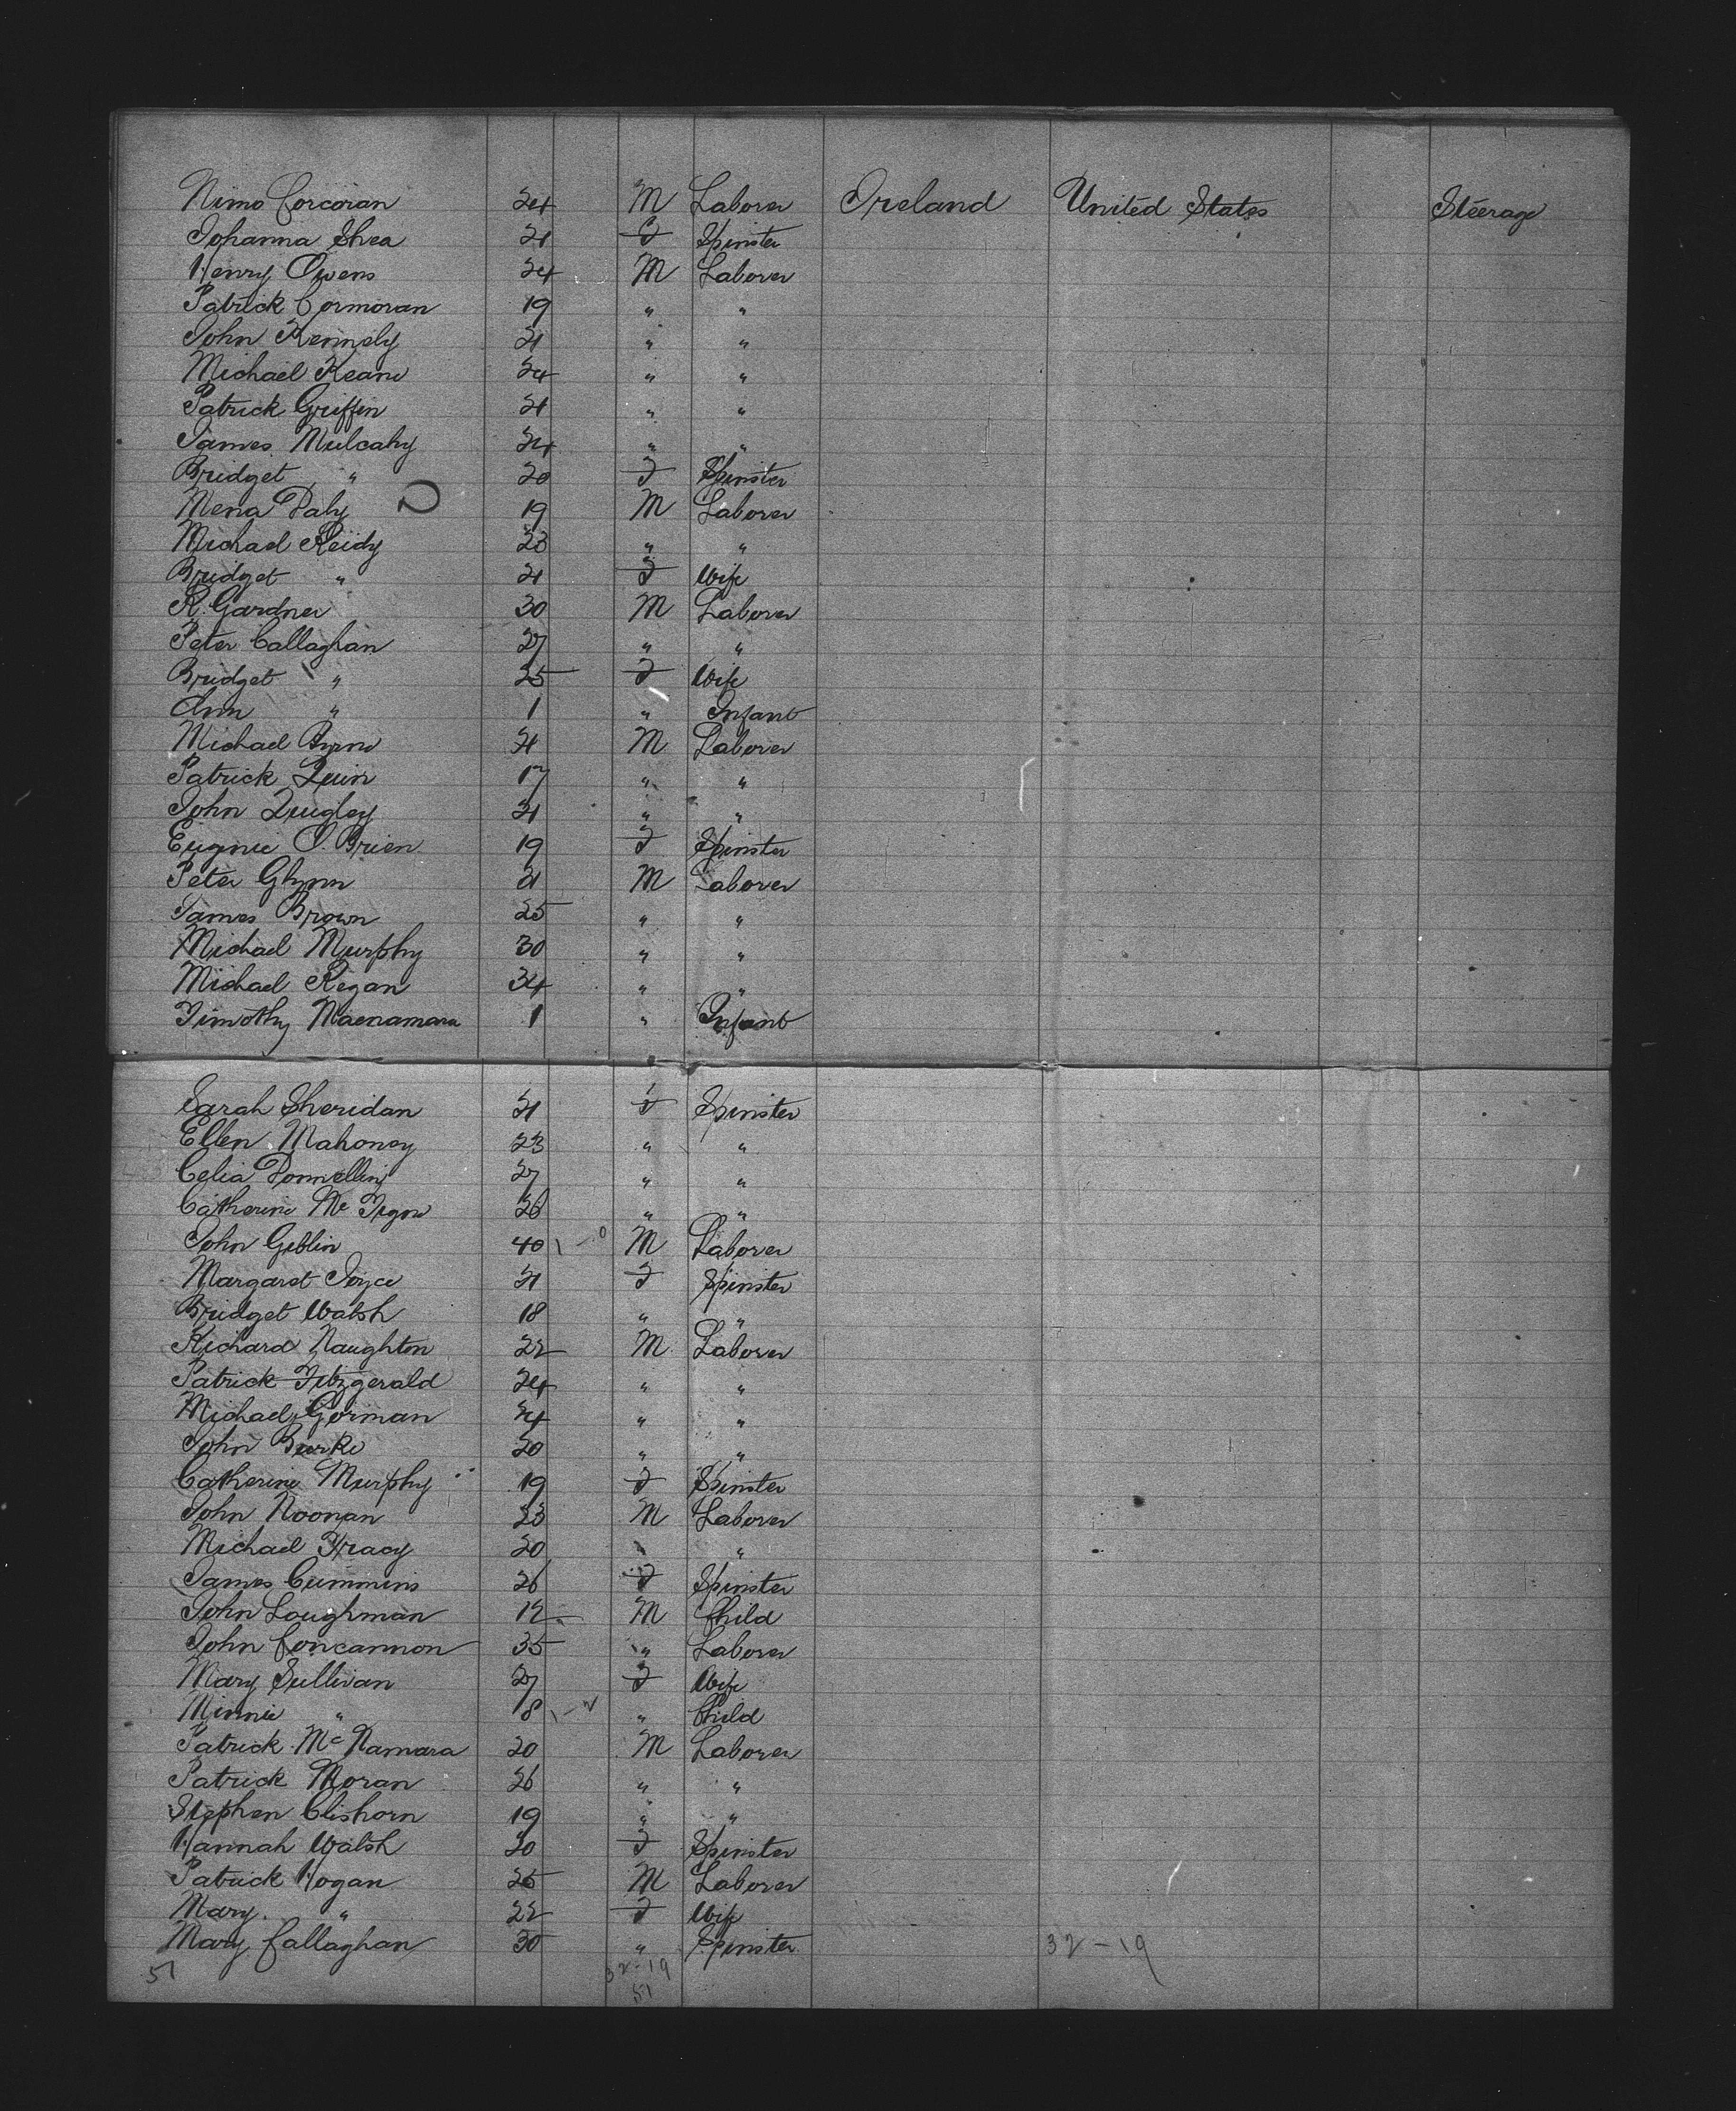 Nimo Corcoran 24 M Laborer Ireland United States Steerage
Johanna Shea 21 F Spinster
Henry Owens 24 M Laborer
Patrick Cormoran 19 " "
John Kennely 21 " "
Michael Keane 24 " "
Patrick Griffin 21 " "
James Mulcahy 24 " "
Bridget " 20 F Spinster
Mena Daly 19 M Laborer
Michael Reidy 23 " "
Bridget " 21 F Wife
R. Gardner 30 M Laborer
Peter Callaghan 27 " "
Bridget " 25 F Wife
Ann " 1 " Infant
Michael Byrne 21 M Laborer
Patrick Quin 17 " "
John Quigley 21 " "
Eugnie O.Brien 19 F Spinster
Peter Glynn 21 M Laborer
James Brown 25 " "
Michael Murphy 30 " "
Michael Regan 34 " "
Timothy Macnamara 1 " Infant
Sarah Sheridan 21 F Spinster
Ellen Mahoney 23 " "
Celia Donnelling 27 " "
Catherine Mc 26 " "
John Geblin 40 1 - 0 M Laborer
Margaret Joyce 21 F Spinster
Bridget Walsh 18 " "
Richard Naughton 22 M Laborer
Patrick Fitzgerald 24 " "
Michael Gorman 24 " "
John Burke 20 " "
Catherine Murphy 19 F Spinster
John Noonan 23 M Laborer
Michael Tracy 20 " "
James Cummins 26 F Spinster
John Loughman 12 M Child
John Concannon 35 " Laborer
Mary Sullivan 27 F Wife
Minnie " 8 1 - 2 " Child
Patrick McNamara 20 M Laborer
Patrick Moran 26 " "
Stephen Clishorn 19 " "
Hannah Walsh 20 F Spinster
Patrick Hogan 25 M Laborer
Mary " 22 F Wife
Mary Callaghan 30 " Spinster 32-19
51 32-19
51